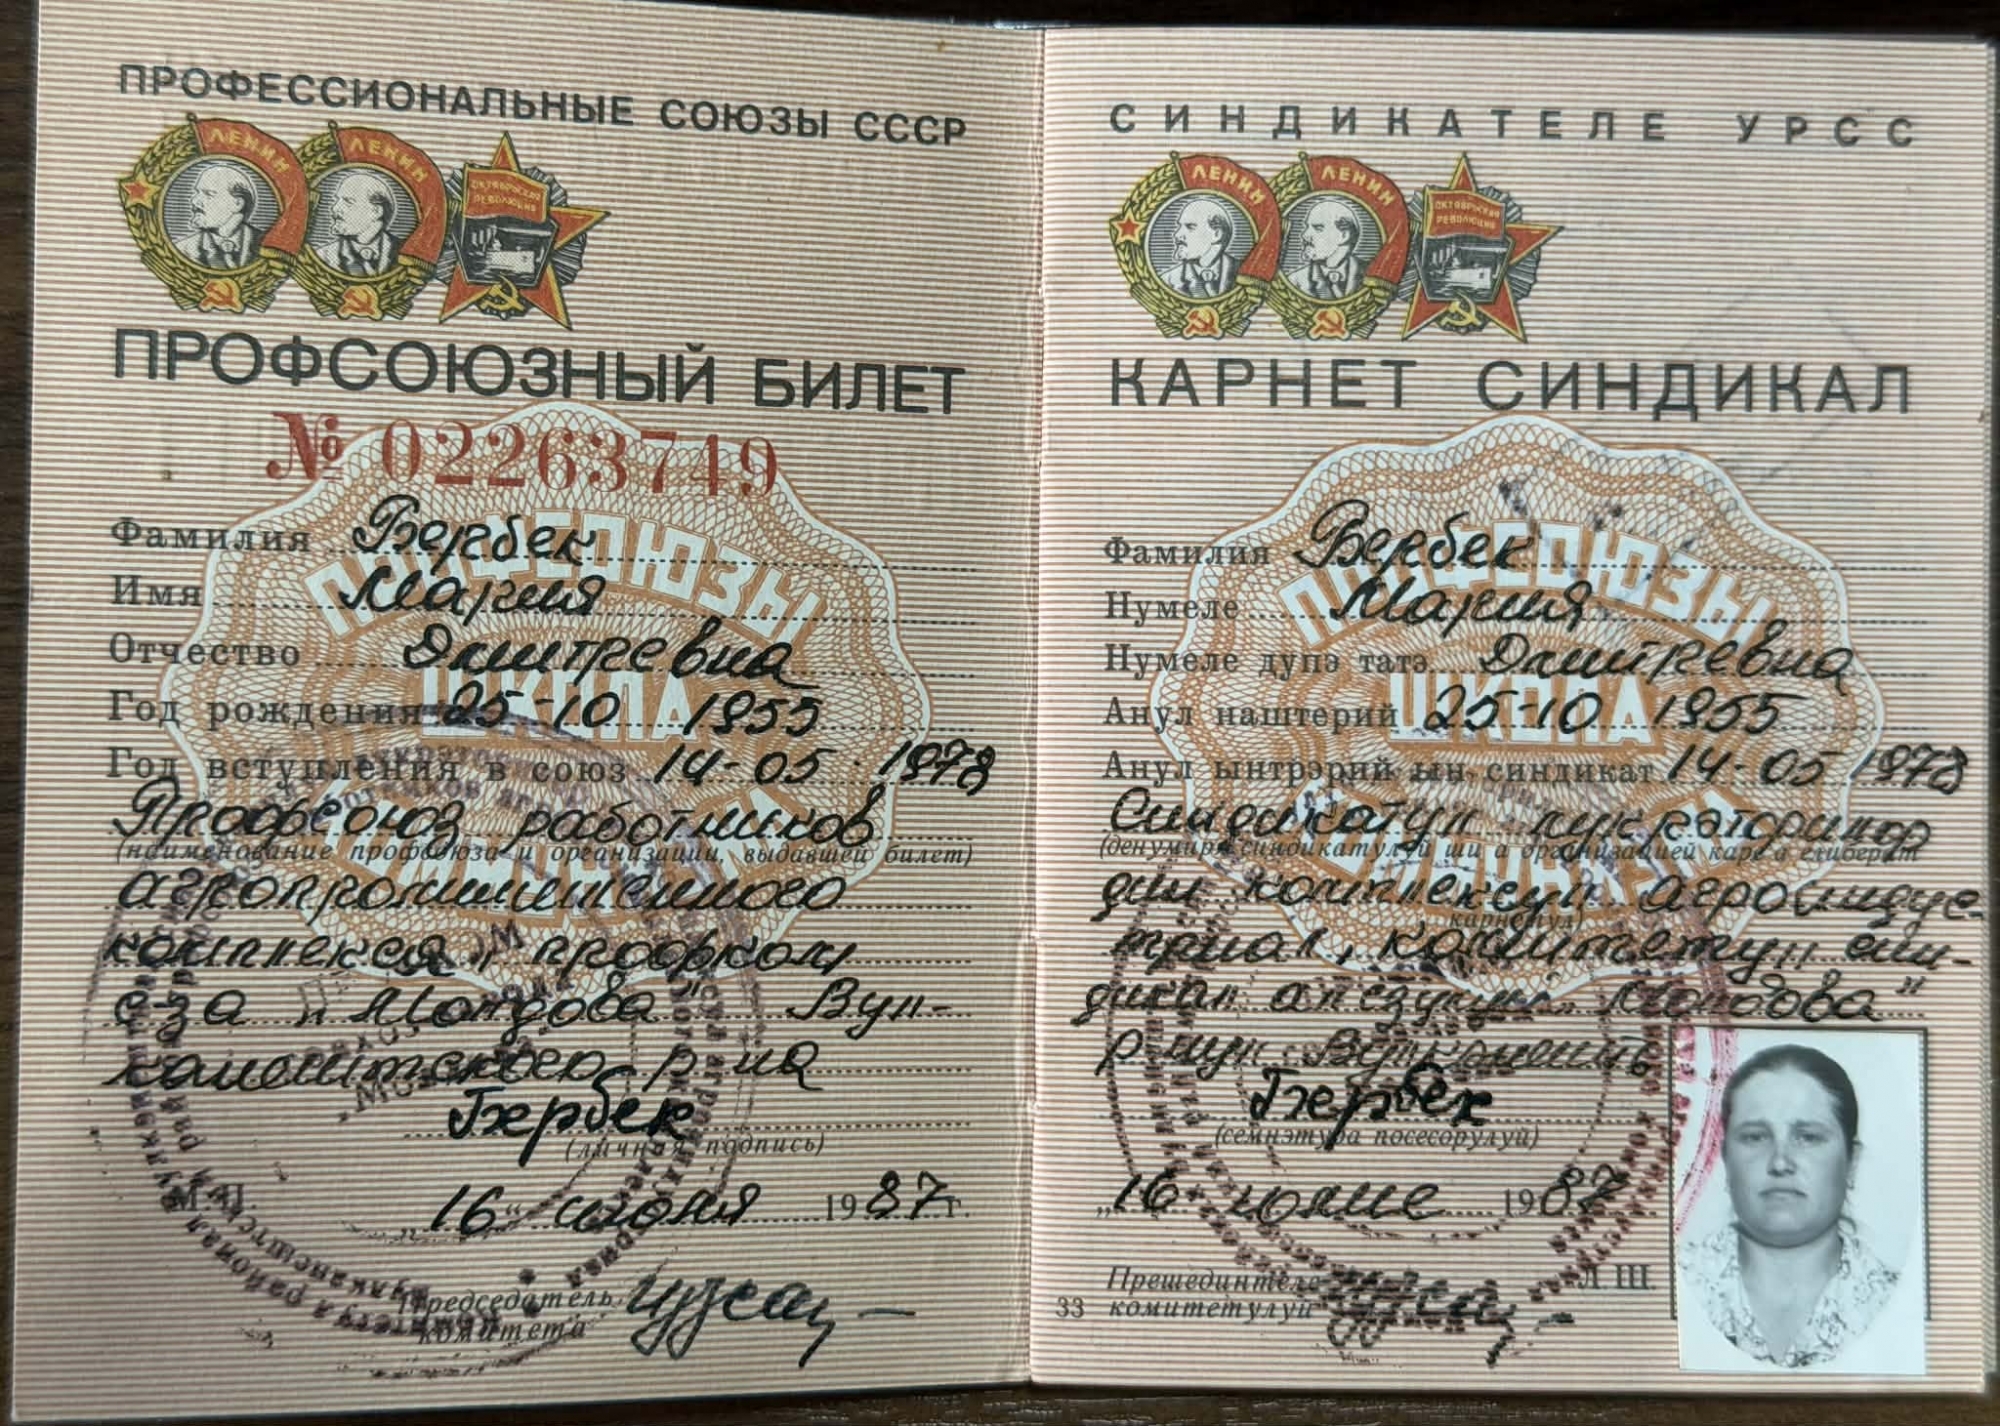 ПРОФЕССИОНАЛЬНЫЕ СОЮЗЫ СССР
ЛЕНИН ЛЕНИН ОКТЯБРЬСКАЯ РЕВОЛЮЦИЯ
ПРОФСОЮЗНЫЙ БИЛЕТ
№ 02263749
ПРОФСОЮЗЫ
ШКОЛА
КОММУНИЗМА
Фамилия Бербек
Имя Мария
Отчество Дмитревна
Год рождения 25-10 1955
Год вступления в союз 14-05 1978
Профсоюз работников
(наименование профсоюза и организации, выдавшей билет)
агропромышленного
комплекса, профком
с-за „Молдова" Вул-
канештского р-на
Бербек
(личная подпись)
М.П.
„16" июня 1987 г.
Председатель
комитета
СИНДИКАТЕЛЕ УРСС
ЛЕНИН ЛЕНИН ОКТЯБРЬСКАЯ РЕВОЛЮЦИЯ
КАРНЕТ СИНДИКАЛ
ПРОФСОЮЗЫ
ШКОЛА
КОММУНИЗМА
Фамилия Бербек
Нумеле Мария
Нумеле дупэ татэ Дмитревна
Анул наштерий 25-10 1955
Анул ынтрэрий ын синдикат 14-05 1978
Синдикатул лукрэторилор
(денумиря синдикатулуй ши а организацией каре а елиберат
дин комплексул агроиндус-
карнетул)
триал, комитетул син-
дикал ал „Молдова"
р-нул Вулканешть
Бербек
(семнэтура посесорулуй)
„16" юние 1987
Л. Ш.
Прешединтеле
33 комитетулуй